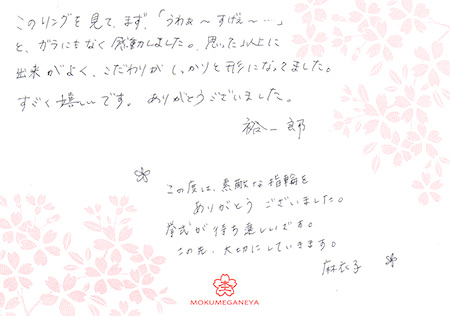 このリングを見て、まず、「うわぁ～すげぇ～…」
と、ガラにもなく感動しました。思った以上に
出来がよく、こだわりがしっかりと形になってました。
すごく嬉しいです。ありがとうございました。
裕一郎
この度は、素敵な指輪を
ありがとうございました。
挙式が待ち遠しいです。
この先、大切にしていきます。
麻衣子
MOKUMEGANEYA